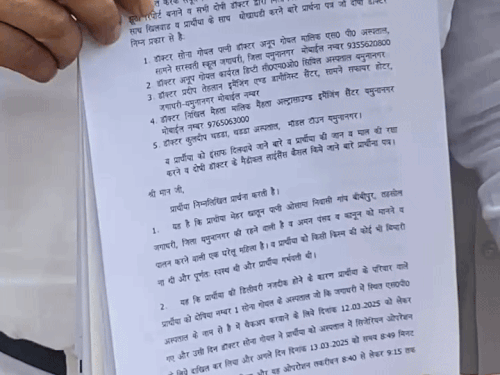 झूठी रिपोर्ट बनाने व सभी दोषी डॉक्टर द्वारा
साथ खिलवाड़ व प्रार्थीया के साथ धोखाधड़ी करने बारे प्रार्थना पत्र जो दोषी डॉक्टर
निम्न प्रकार से है:
1. डॉक्टर सोना गोयल पत्नी डॉक्टर अनूप गोयल मालिक एस० पी० अस्पताल,
सामने सरस्वती स्कूल जगाधरी, जिला यमुनानगर मोबाईल नम्बर 9355620800
2. डॉक्टर अनूप गोयल कार्यरत डिप्टी सी०एम०ओ० सिविल अस्पताल यमुनानगर
3. डॉक्टर प्रदीप तेहलान इमैजिंग एण्ड डागीनिस्ट सैंटर, सामने सफायर होटर,
जगाधरी-यमुनानगर मोबाईल नम्बर
4. डॉक्टर निखिल मैहता मालिक मैहता अल्ट्रासाउण्ड इमैजिंग सैंटर यमुनानगर
मोबाईल नम्बर 9765063000
5. डॉक्टर कुलदीप चडडा, चडडा अस्पताल, मॉडल टाउन यमुनानगर।
व प्रार्थीया को इंसाफ दिलवाये जाने बारे व प्रार्थीया की जान व माल की रक्षा
करने व दोषी डॉक्टर के मैडीकल लाईसैंस कैंसल किये जाने बारे प्रार्थना पत्र।
श्री मान जी,
प्रार्थीया निम्नलिखित प्रार्थना करती है।
1. यह है कि प्रार्थीया मेहर खातून पत्नी ओसामा निवासी गांव बीबीपुर, तहसील
जगाधरी, जिला यमुनानगर की रहने वाली है व अमन पंसद व कानून को मानने व
पालन करने वाली एक घरेलू महिला है। व प्रार्थीया को किसी किस्म की कोई भी बिमारी
ना थी और पूर्णतः स्वस्थ थी और प्रार्थीया गर्भवती थी।
2. यह कि प्रार्थीया की डिलीवरी नजदीक होने के कारण प्रार्थीया के परिवार वाले
प्रार्थीया को दोषिया नम्बर 1 सोना गोयल के अस्पताल जो कि जगाधरी में स्थित एस०पी०
अस्पताल के नाम से है मे चैकअप करवाने के लिये दिनांक 12.03.2025 को लेकर
गए और उसी दिन डॉक्टर सोना गोयल ने प्रार्थीया को अस्पताल में सिजेरियन ओपरेशन
के लिये दाखिल कर लिया और अगले दिन दिनांक 13.03.2025 को समय 8:49 मिनट
और यह ओपरेशन तकरीबन 8:40 से लेकर 9:15 तक